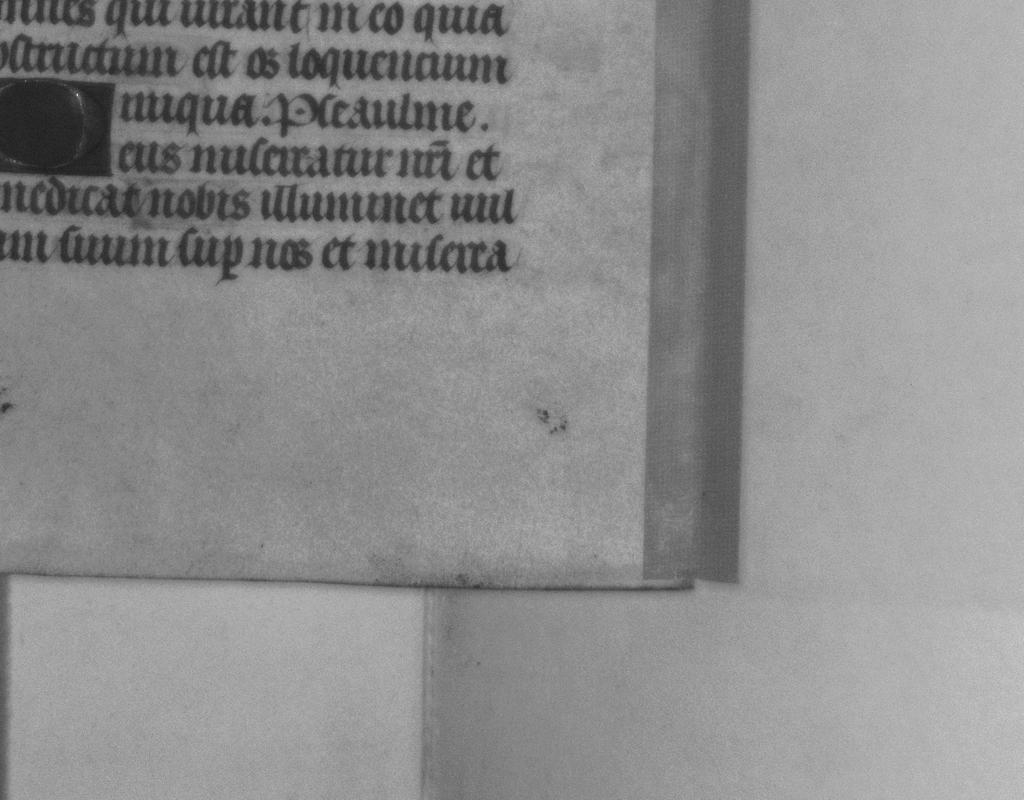 omnes qui iurant in eo quia
obstructum est os loquencium
iniqua. Pseaulme.
Deus misereatur nr̄i et
benedicat nobis illuminet vul
tum suum sup̱ nos et miserea